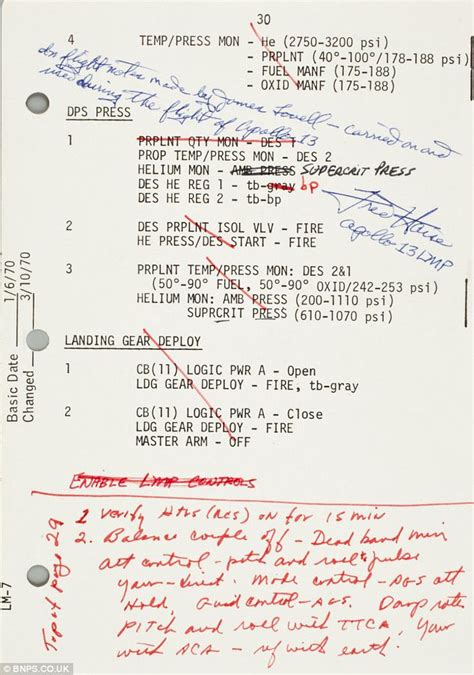 30
4 TEMP/PRESS MON - He (2750-3200 psi)
- PRPLNT (40°-100°/178-188 psi)
- FUEL MANF (175-188)
- OXID MANF (175-188)
on flight notes made by James Lovell - carried on and
used during the flight of Apollo 13
DPS PRESS
1 PRPLNT QTY MON - DES 1
PROP TEMP/PRESS MON - DES 2
HELIUM MON - AMB PRESS SUPERCRIT PRESS
DES HE REG 1 - tb-gray bp
DES HE REG 2 - tb-bp
Fred Haise
Apollo 13 LMP
2 DES PRPLNT ISOL VLV - FIRE
HE PRESS/DES START - FIRE
3 PRPLNT TEMP/PRESS MON: DES 2&1
(50°-90° FUEL, 50°-90° OXID/242-253 psi)
HELIUM MON: AMB PRESS (200-1110 psi)
SUPRCRIT PRESS (610-1070 psi)
LANDING GEAR DEPLOY
1 CB(11) LOGIC PWR A - Open
LDG GEAR DEPLOY - FIRE, tb-gray
2 CB(11) LOGIC PWR A - Close
LDG GEAR DEPLOY - FIRE
MASTER ARM - OFF
Basic Date 1/6/70
Changed 3/10/70
LM-7
ENABLE LMP CONTROLS
1 Verify Htrs (RES) on for 15 min
2. Balance couple off - Dead band min
att control - pitch and roll pulse
Yaw - Direct. Mode control - AGS att
Hold, Guid control - AGS. Damp rates
PITCH and roll with TTCA, Yaw
with ACA - with earth.
Top of page 29
© BNPS.CO.UK